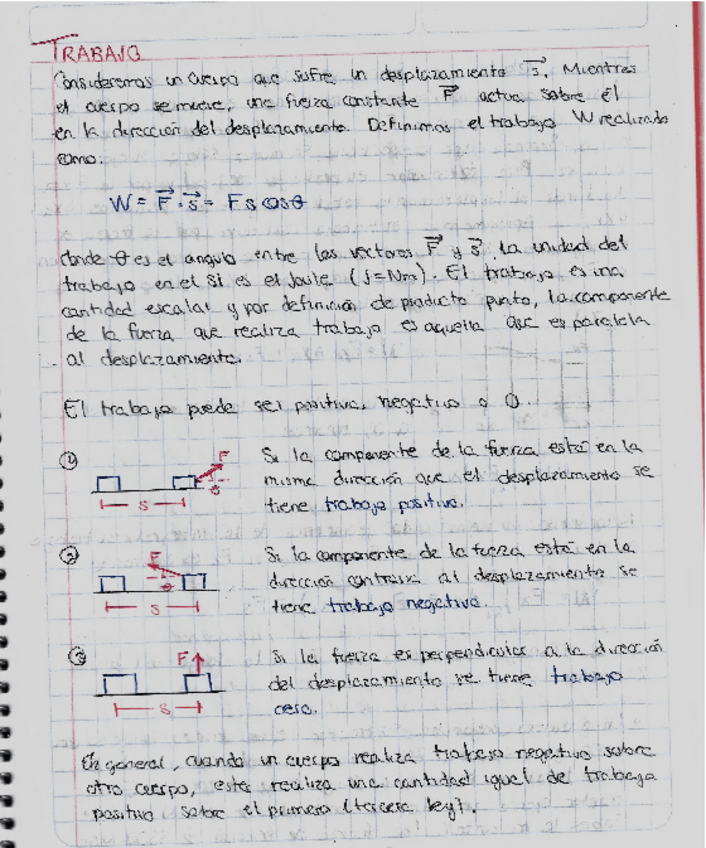 TRABAJO
Consideremos un cuerpo que sufre un desplazamiento s⃗. Mientras
el cuerpo se mueve, una fuerza constante F⃗ actua sobre él
en la dirección del desplazamiento. Definimos el trabajo W realizado
como:
W = F⃗ · s⃗ = F s cosθ
donde θ es el angulo entre los vectores F⃗ y s⃗. La unidad del
trabajo en el SI es el Joule (J=Nm). El trabajo es una
cantidad escalar y por definición de producto punto, la componente
de la fuerza que realiza trabajo es aquella que es paralela
al desplazamiento.
El trabajo puede ser positivo, negativo o 0.
① Si la componente de la fuerza está en la
misma dirección que el desplazamiento se
tiene trabajo positivo.
F
θ
s
② Si la componente de la fuerza está en la
dirección contraria al desplazamiento se
tiene trabajo negativo.
F
θ
s
③ Si la fuerza es perpendicular a la dirección
del desplazamiento se tiene trabajo
cero.
F
s
En general, cuando un cuerpo realiza trabajo negativo sobre
otro cuerpo, este realiza una cantidad igual de trabajo
positivo sobre el primero (tercera ley).